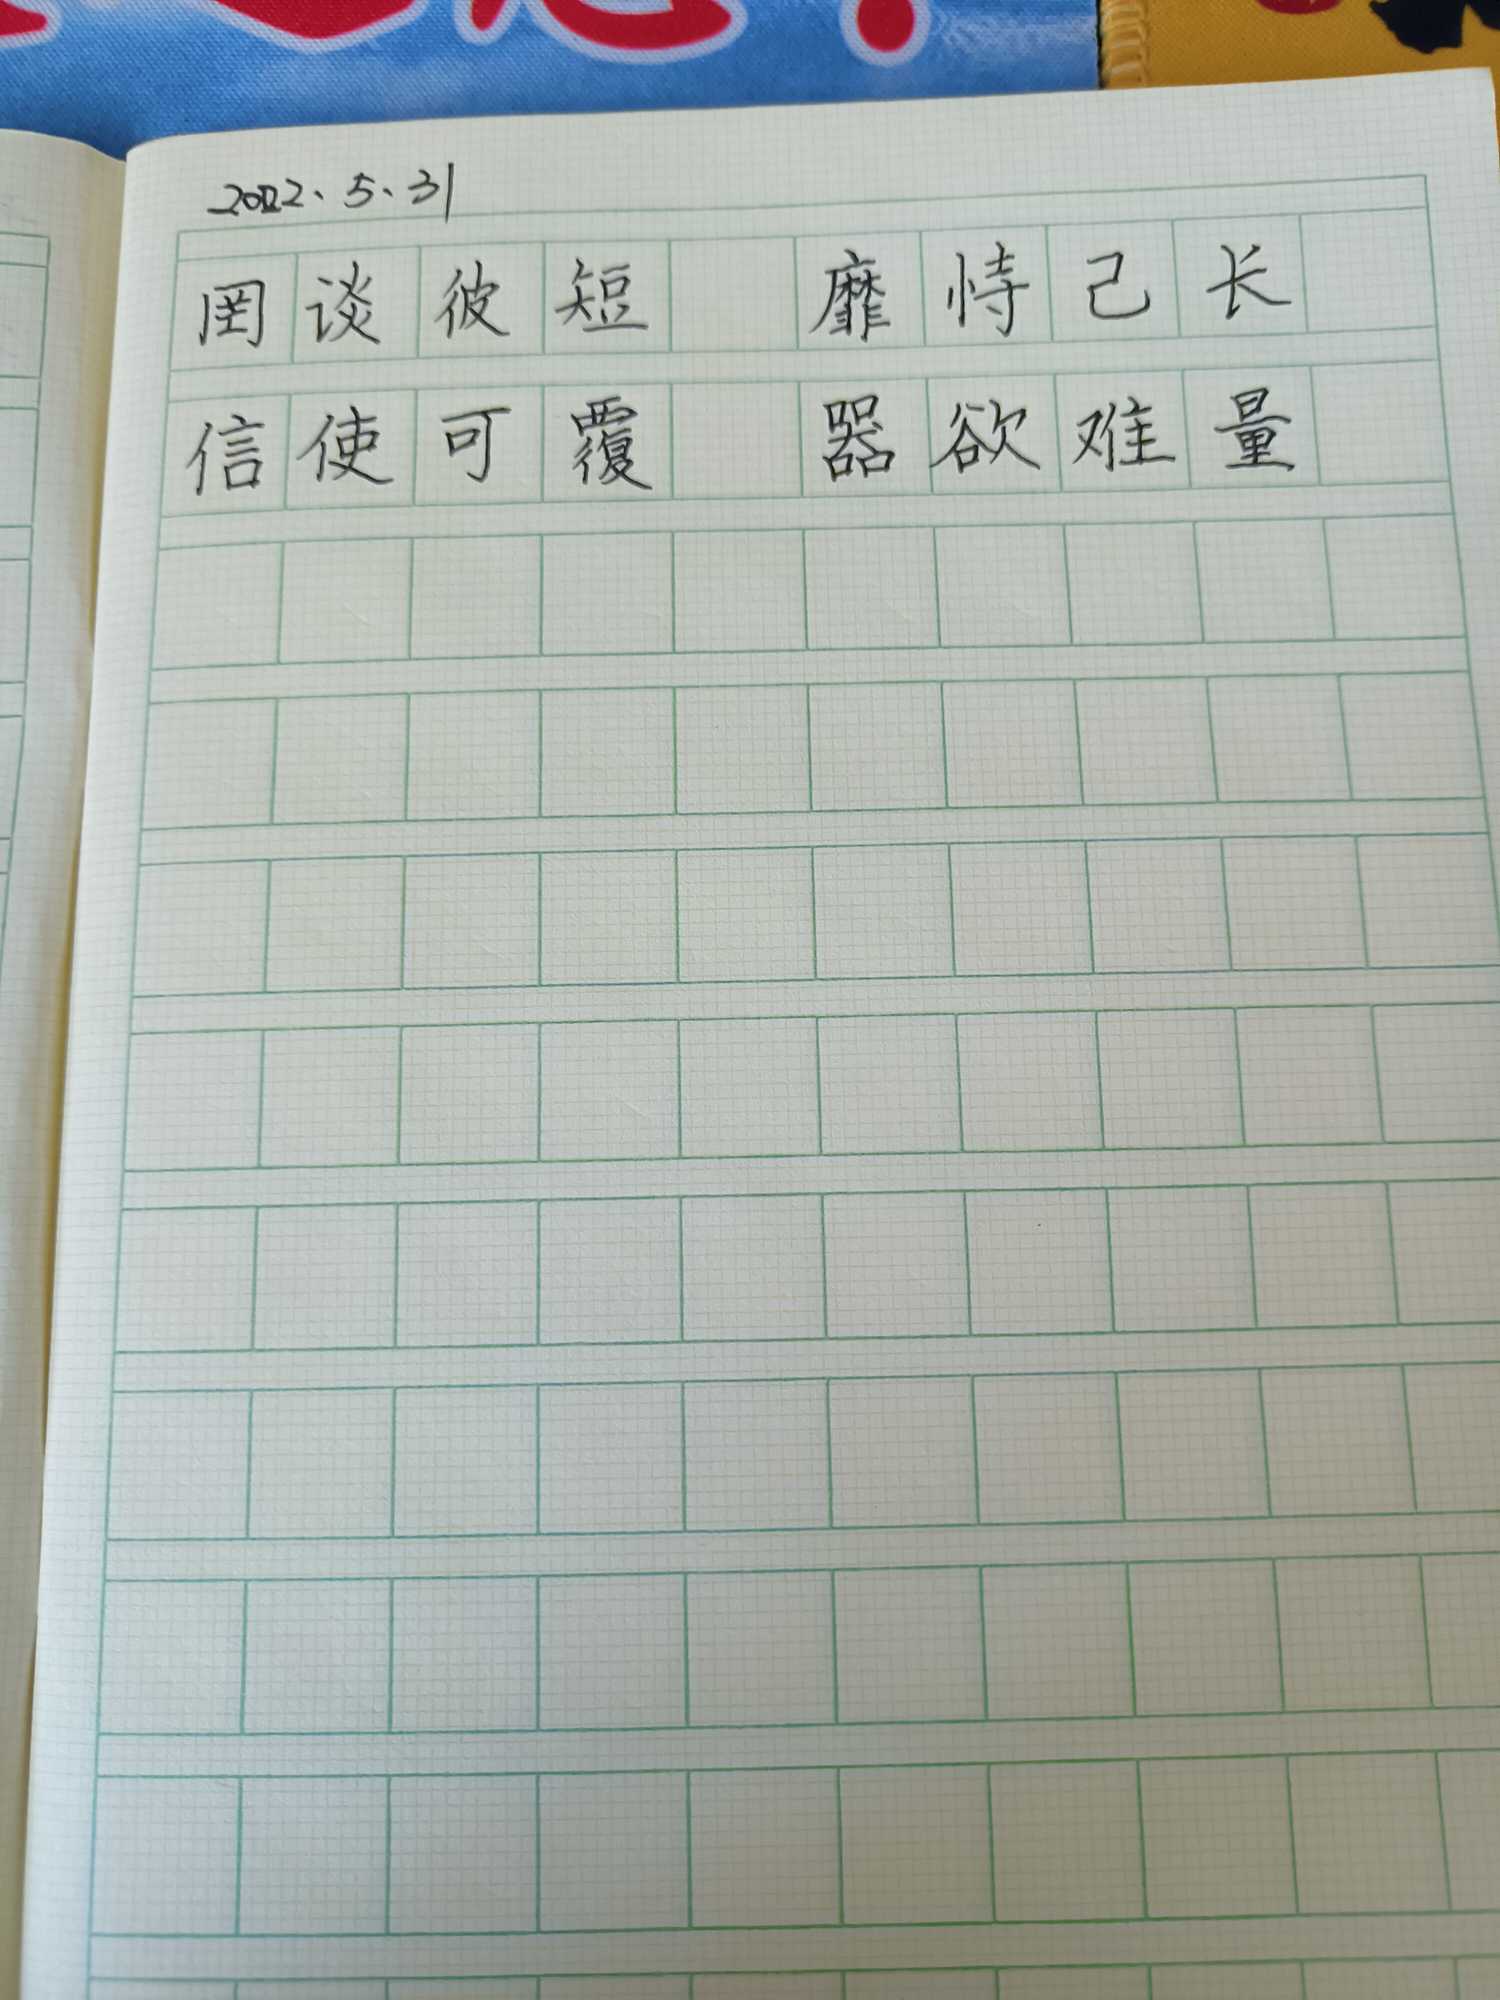 2022.5.31
罔谈彼短 靡恃己长
信使可覆 器欲难量